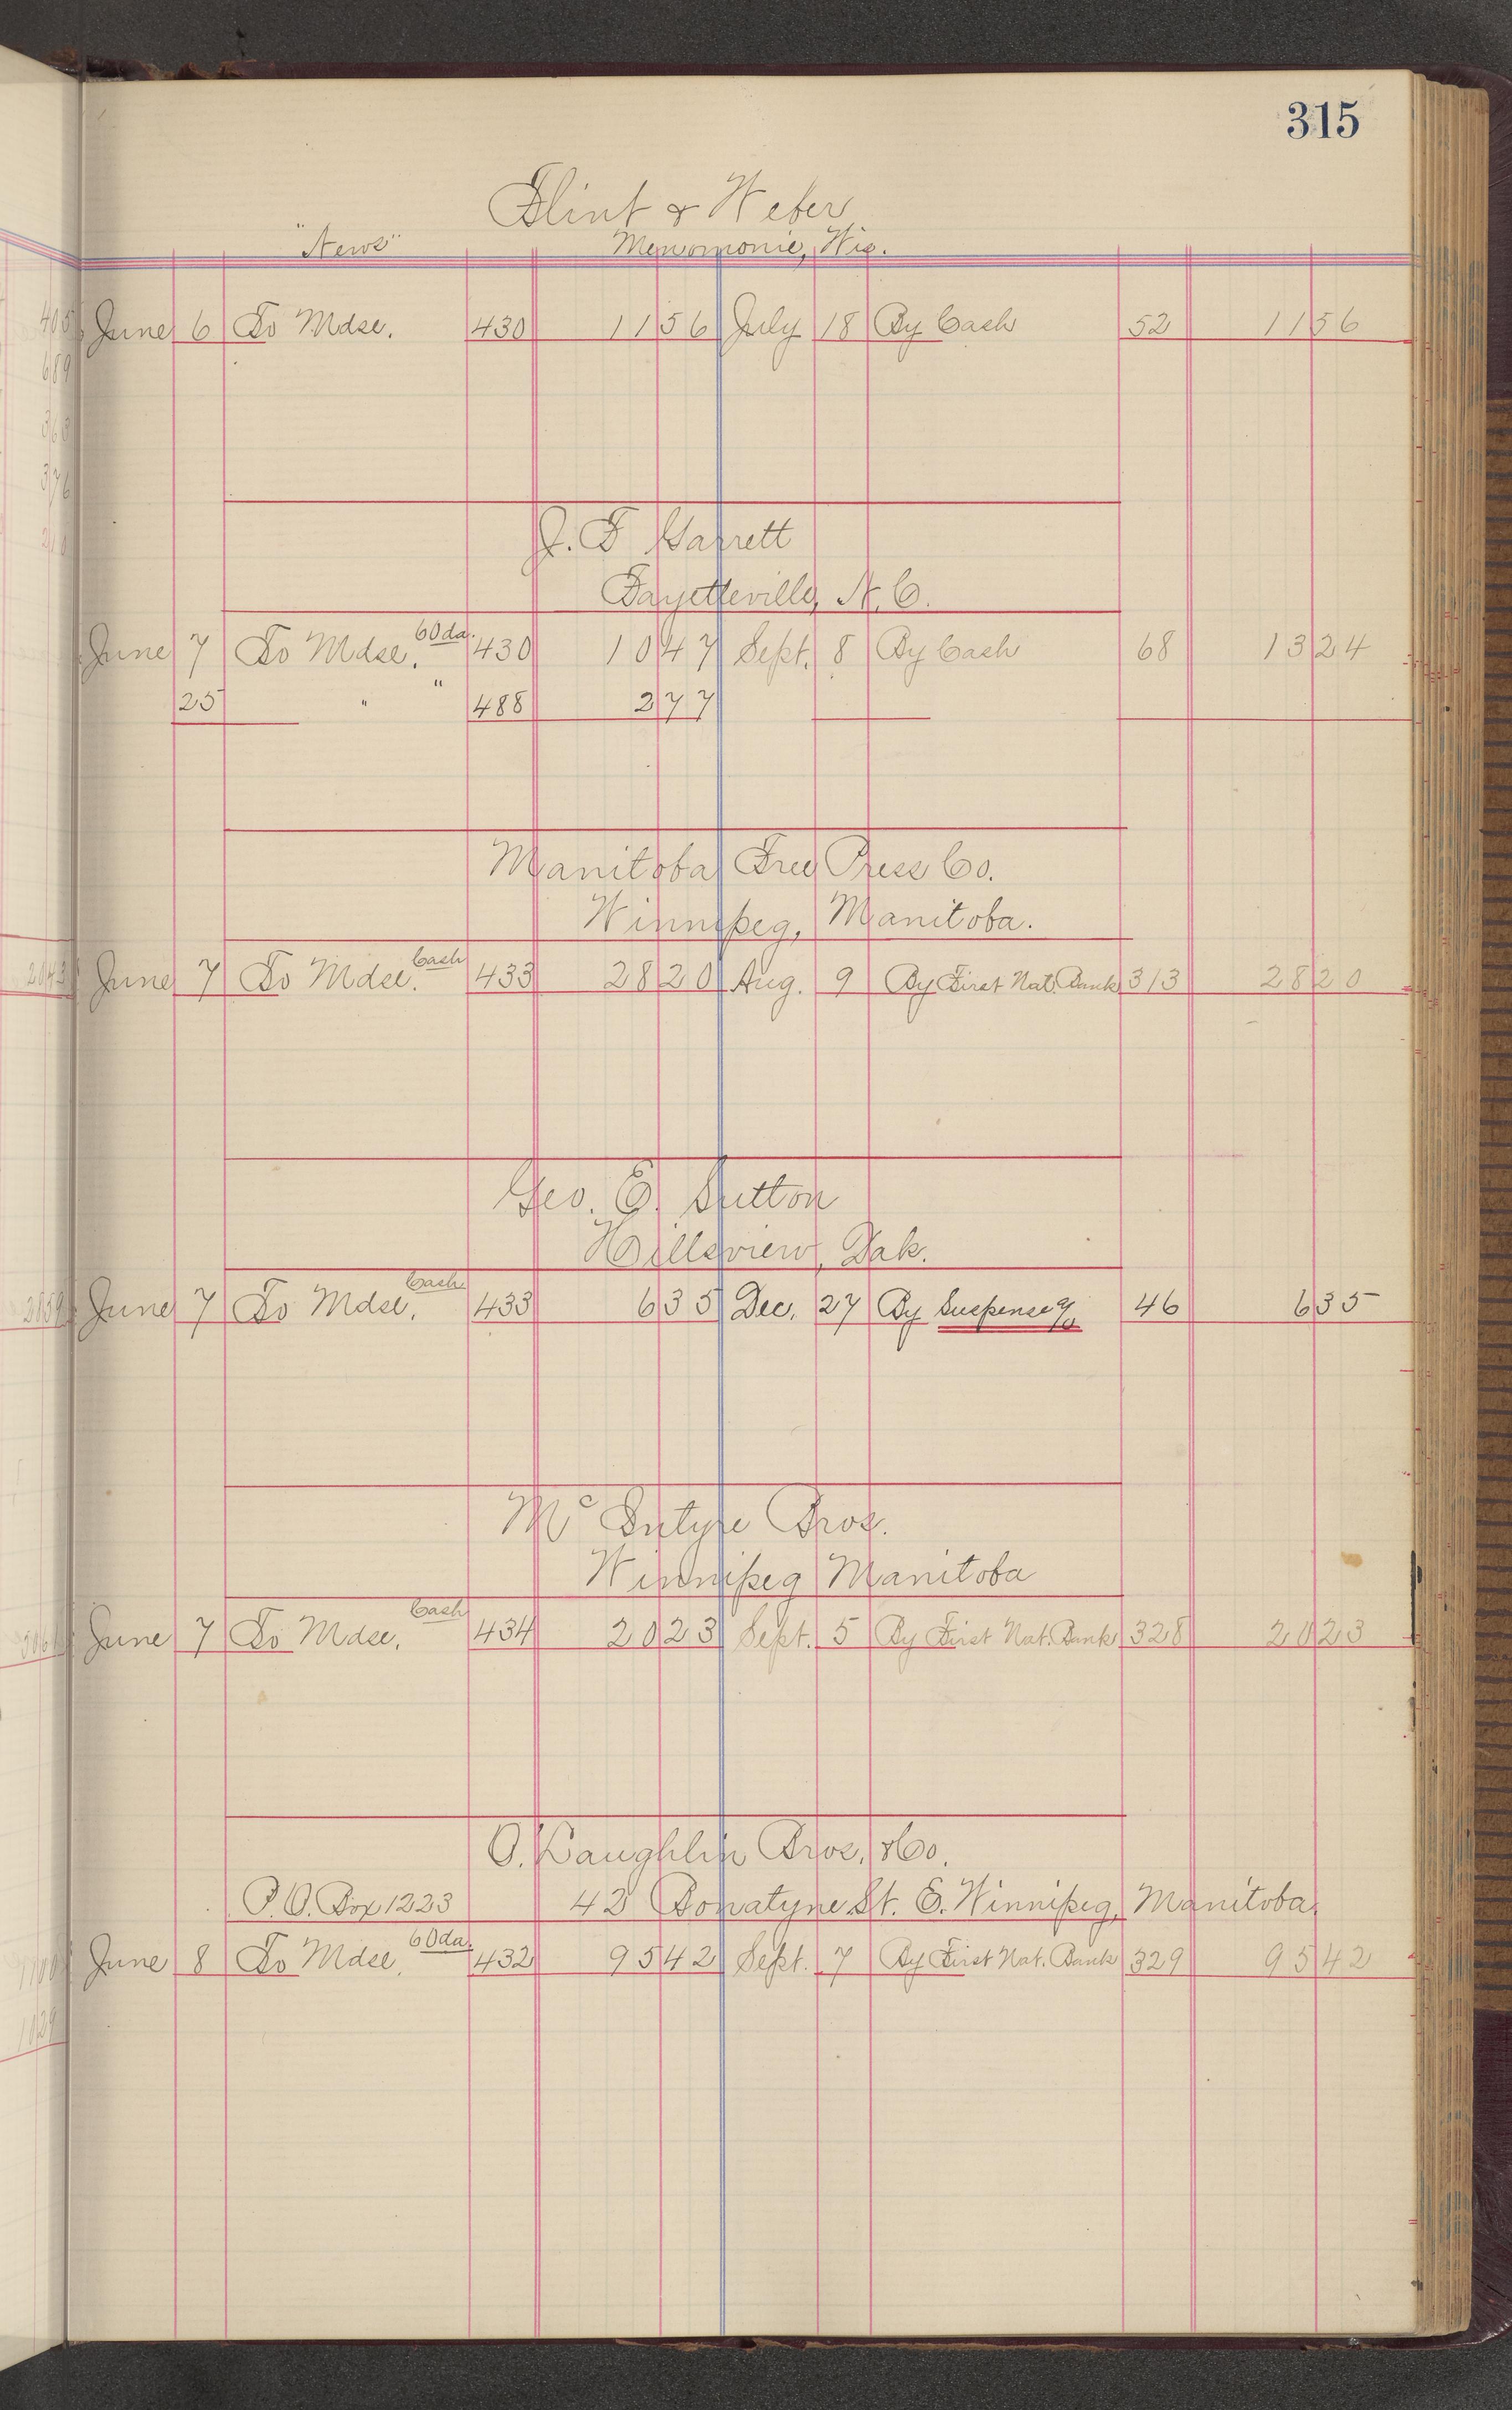 315
Flint & Weber
"News" Menomonie, Wis.
June 6 To Mdse. 430 11 56 July 18 By Cash 52 11 56
J. F. Garrett
Fayetteville, N. C.
June 7 To Mdse. 60 da. 430 10 47 Sept. 8 By Cash 68 13 24
25 " " 488 2 77
Manitoba Free Press Co.
Winnipeg, Manitoba.
June 7 To Mdse. Cash 433 28 20 Aug. 9 By First Nat. Bank 313 28 20
Geo. E. Sutton
Hillsview, Dak.
June 7 To Mdse. Cash 433 6 35 Dec. 27 By Suspense a/c 46 6 35
McIntyre Bros.
Winnipeg Manitoba
June 7 To Mdse. Cash 434 20 23 Sept. 5 By First Nat. Bank 328 20 23
O'Laughlin Bros. & Co.
P. O. Box 1223 42 Bonatyne St. E. Winnipeg, Manitoba.
June 8 To Mdse. 60 da. 432 95 42 Sept. 7 By First Nat. Bank 329 95 42